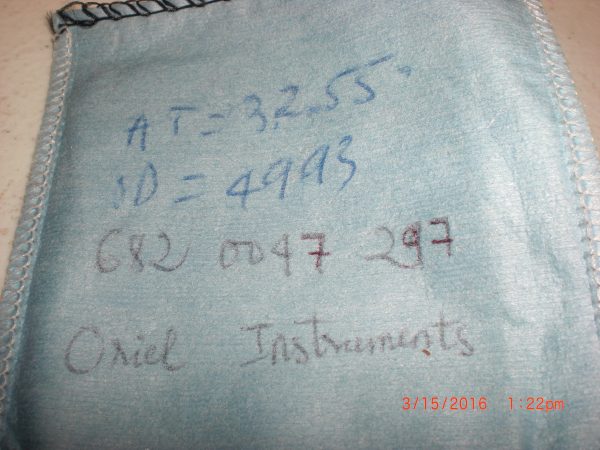 AT = 32.55
SD = 4993
682 0047 297
Oriel Instruments
3/15/2016 1:22pm